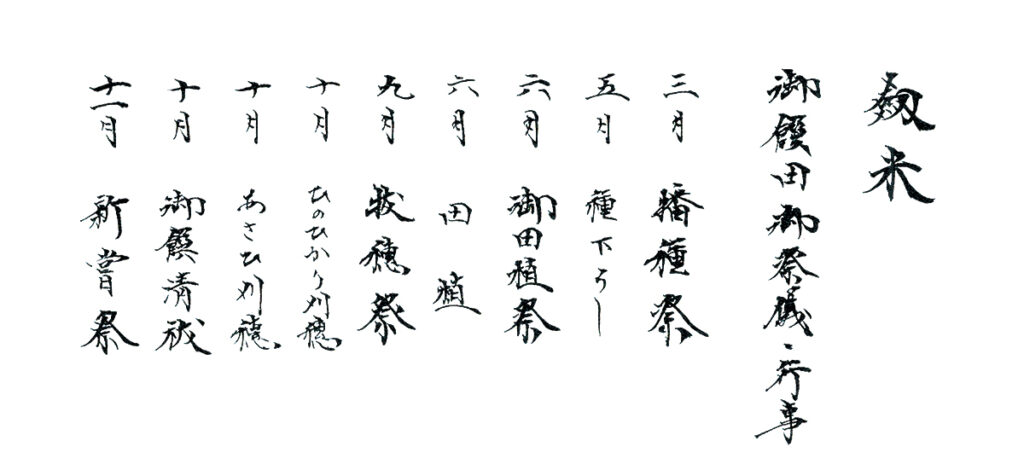 劔米
御饌田御祭儀、行事
三月 播種祭
五月 種下ろし
六月 御田植祭
六月 田植
九月 抜穂祭
十月 ひのひかり刈穂
十月 あさひ刈穂
十月 御饌清祓
十一月 新嘗祭